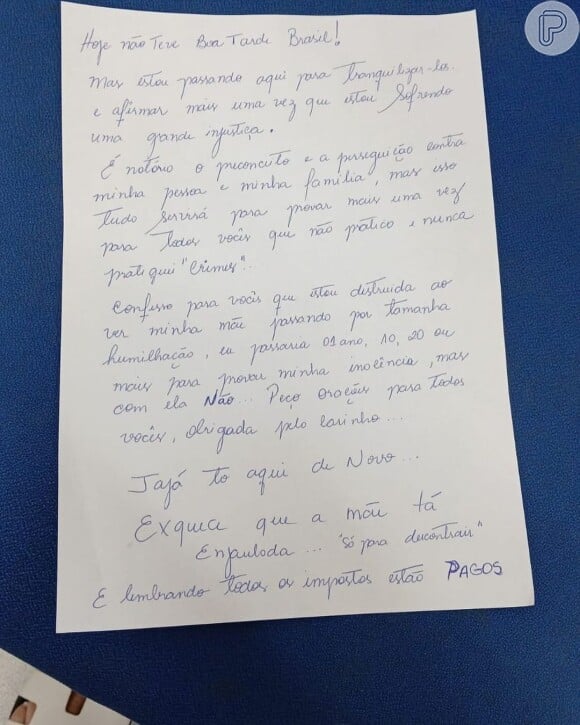 Hoje não Teve Boa Tarde Brasil!
Mas estou passando aqui para Tranquilizar-los
e afirmar mais uma vez que estou Sofrendo
uma grande injustiça.
É notório o preconceito e a perseguição contra
minha pessoa e minha família, mas isso
tudo servirá para provar mais uma vez
para todos vocês que não pratico e nunca
pratiquei "Crimes"..
Confesso para vocês que estou destruida ao
ver minha mãe passando por tamanha
humilhação, eu passaria 01 ano, 10, 20 ou
mais para provar minha inocência, mas
com ela Não... Peço orações para todos
vocês, obrigada pelo carinho...
Jajá to aqui de Novo...
Exquece que a mãe tá
Enjaulada... "Só para descontrair"
E lembrando todos os impostos estão PAGOS
P